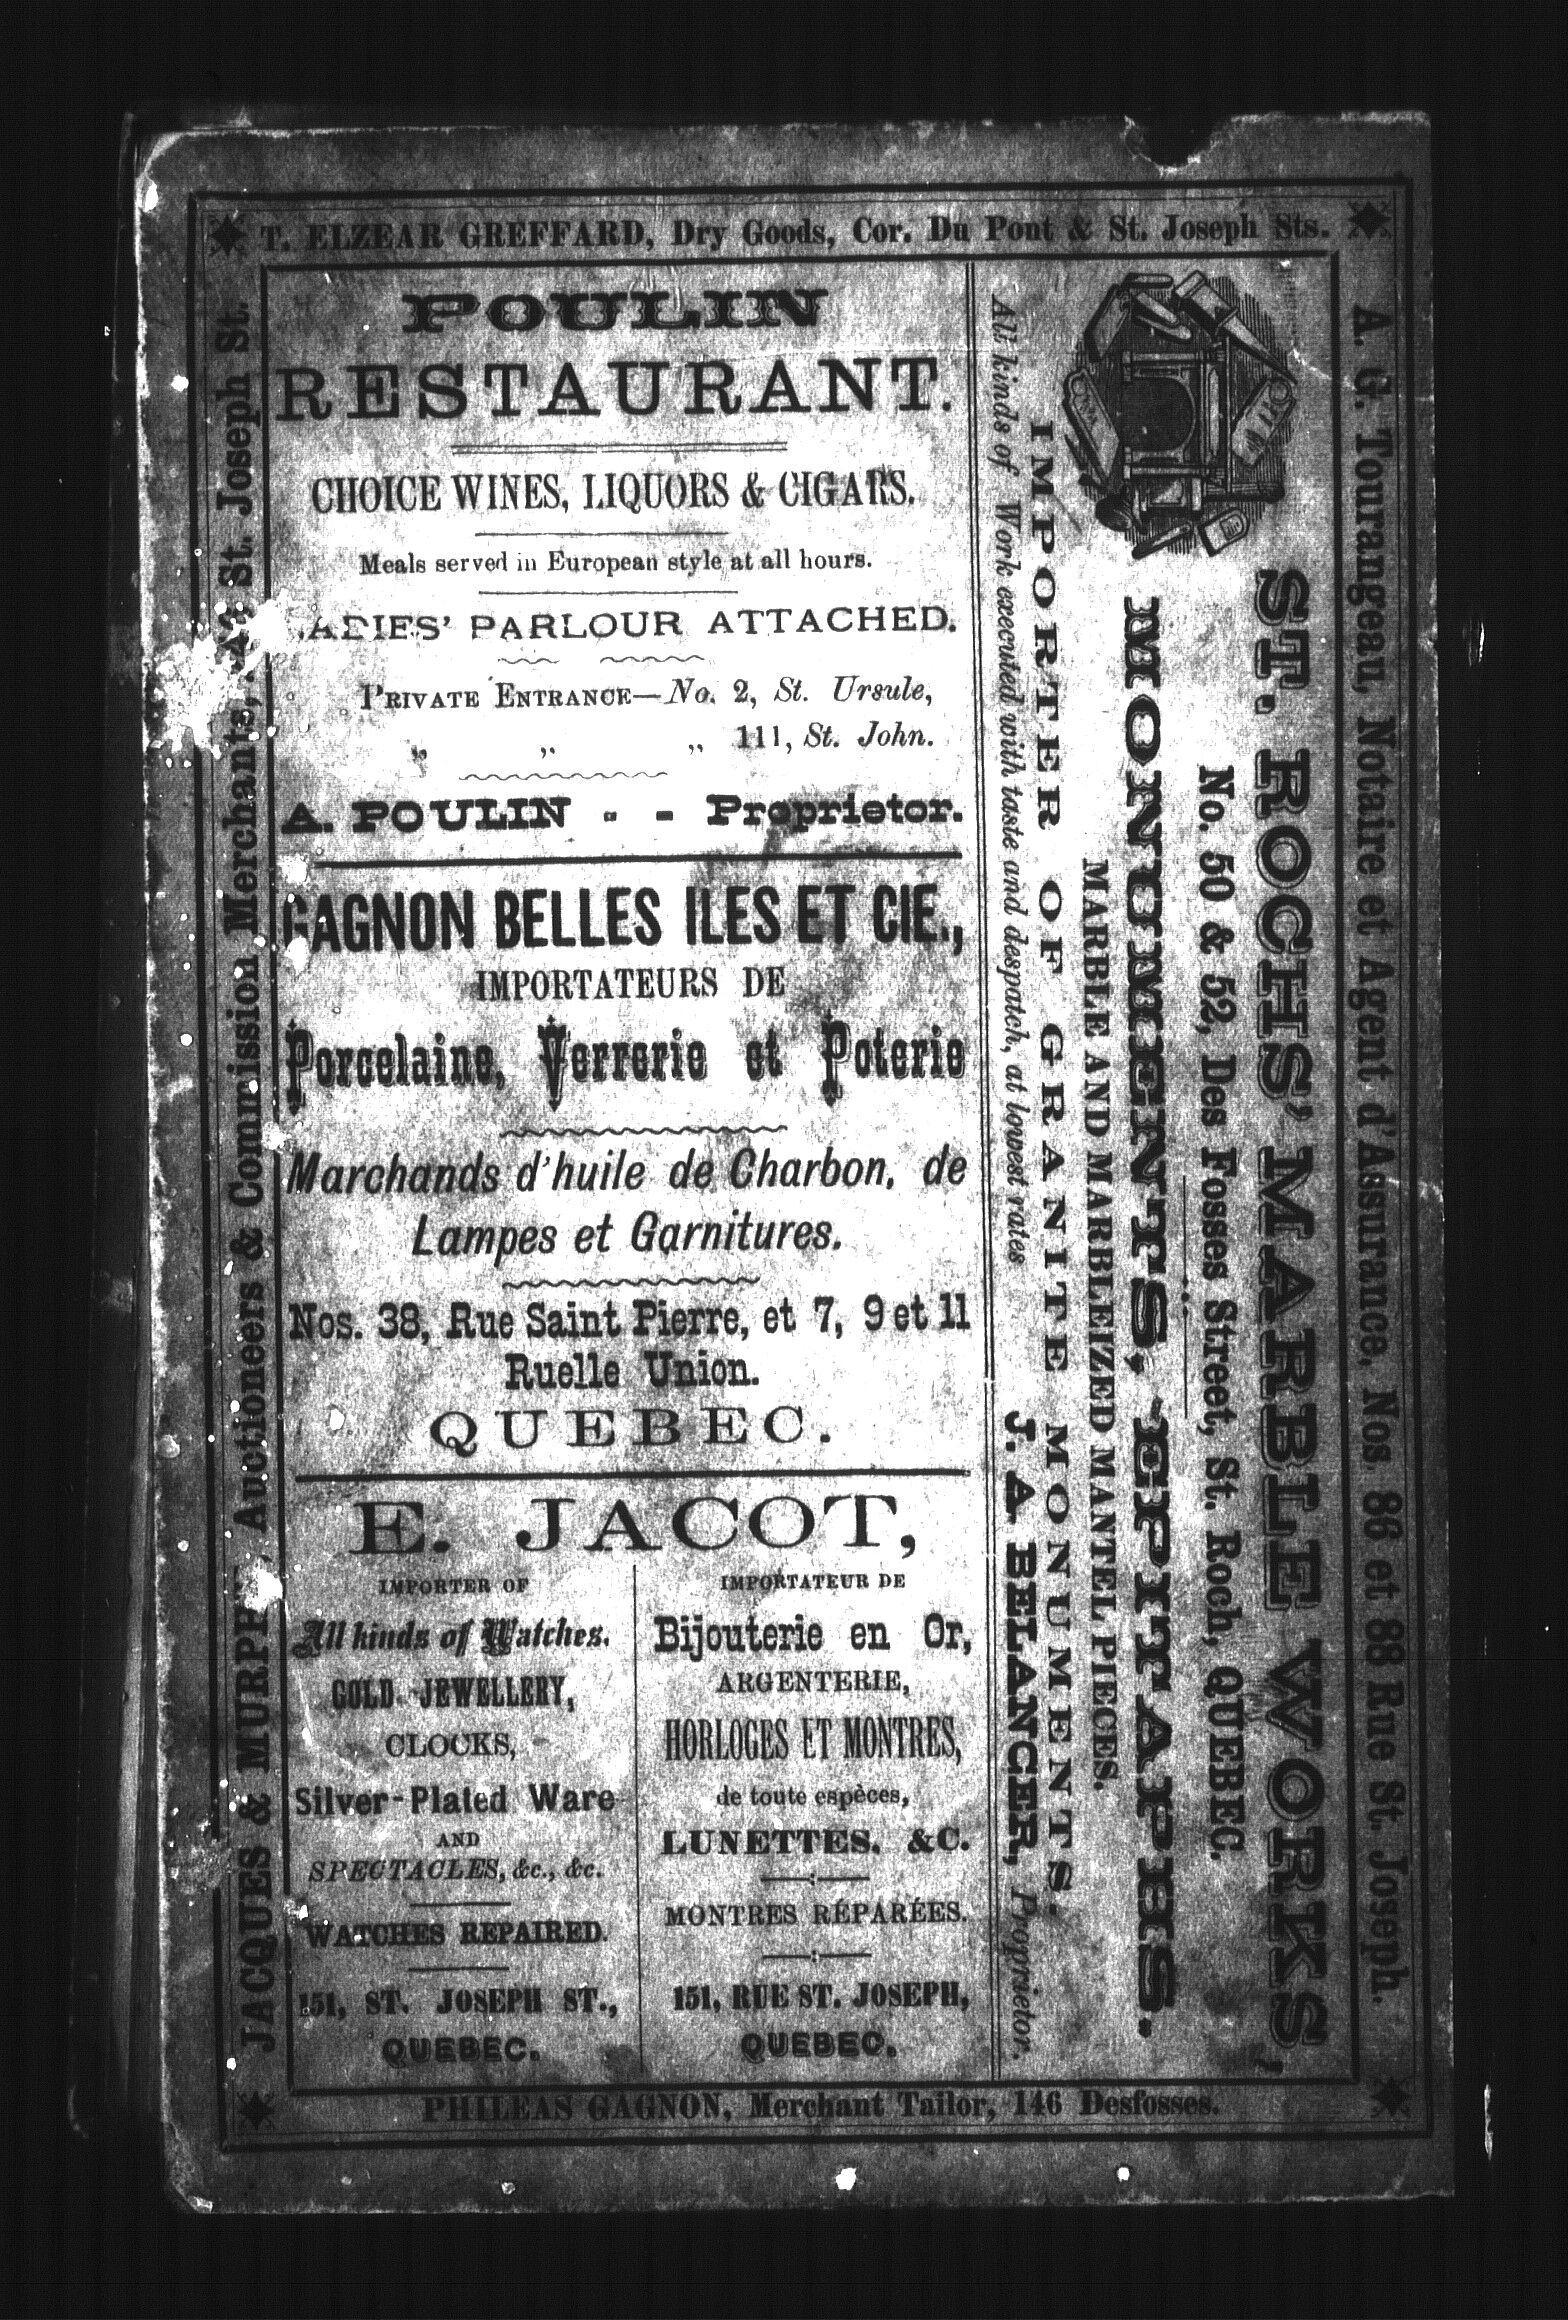 T. ELZEAR GREFFARD, Dry Goods, Cor. Du Pont & St. Joseph Sts.
POULIN
RESTAURANT.
CHOICE WINES, LIQUORS & CIGARS.
Meals served in European style at all hours.
LADIES' PARLOUR ATTACHED.
PRIVATE ENTRANCE—No. 2, St. Ursule,
„ „ „ 111, St. John.
A. POULIN - - Proprietor.
GAGNON BELLES ILES ET CIE.,
IMPORTATEURS DE
Porcelaine, Verrerie et Poterie
Marchands d'huile de Charbon, de
Lampes et Garnitures.
Nos. 38, Rue Saint Pierre, et 7, 9 et 11
Ruelle Union.
QUEBEC.
E. JACOT,
IMPORTER OF
All kinds of Watches.
GOLD JEWELLERY,
CLOCKS,
Silver-Plated Ware
AND
SPECTACLES, &c., &c.
WATCHES REPAIRED.
151, ST. JOSEPH ST.,
QUEBEC.
IMPORTATEUR DE
Bijouterie en Or,
ARGENTERIE,
HORLOGES ET MONTRES,
de toute espèces,
LUNETTES, &C.
MONTRES RÉPARÉES.
151, RUE ST. JOSEPH,
QUEBEC.
ST. ROCHS' MARBLE WORKS,
No. 50 & 52, Des Fosses Street, St. Roch, QUEBEC.
MONUMENTS, EPITAPHS.
MARBLE AND MARBLEIZED MANTEL PIECES.
IMPORTER OF GRANITE MONUMENTS.
All kinds of Work executed with taste and despatch, at lowest rates
J. A. BELANGER, Proprietor.
A. G. Tourangeau, Notaire et Agent d'Assurance, Nos 86 et 88 Rue St. Joseph.
JACQUES & MURPHY, Auctioneers & Commission Merchants, St. Joseph St.
PHILEAS GAGNON, Merchant Tailor, 146 Desfosses.